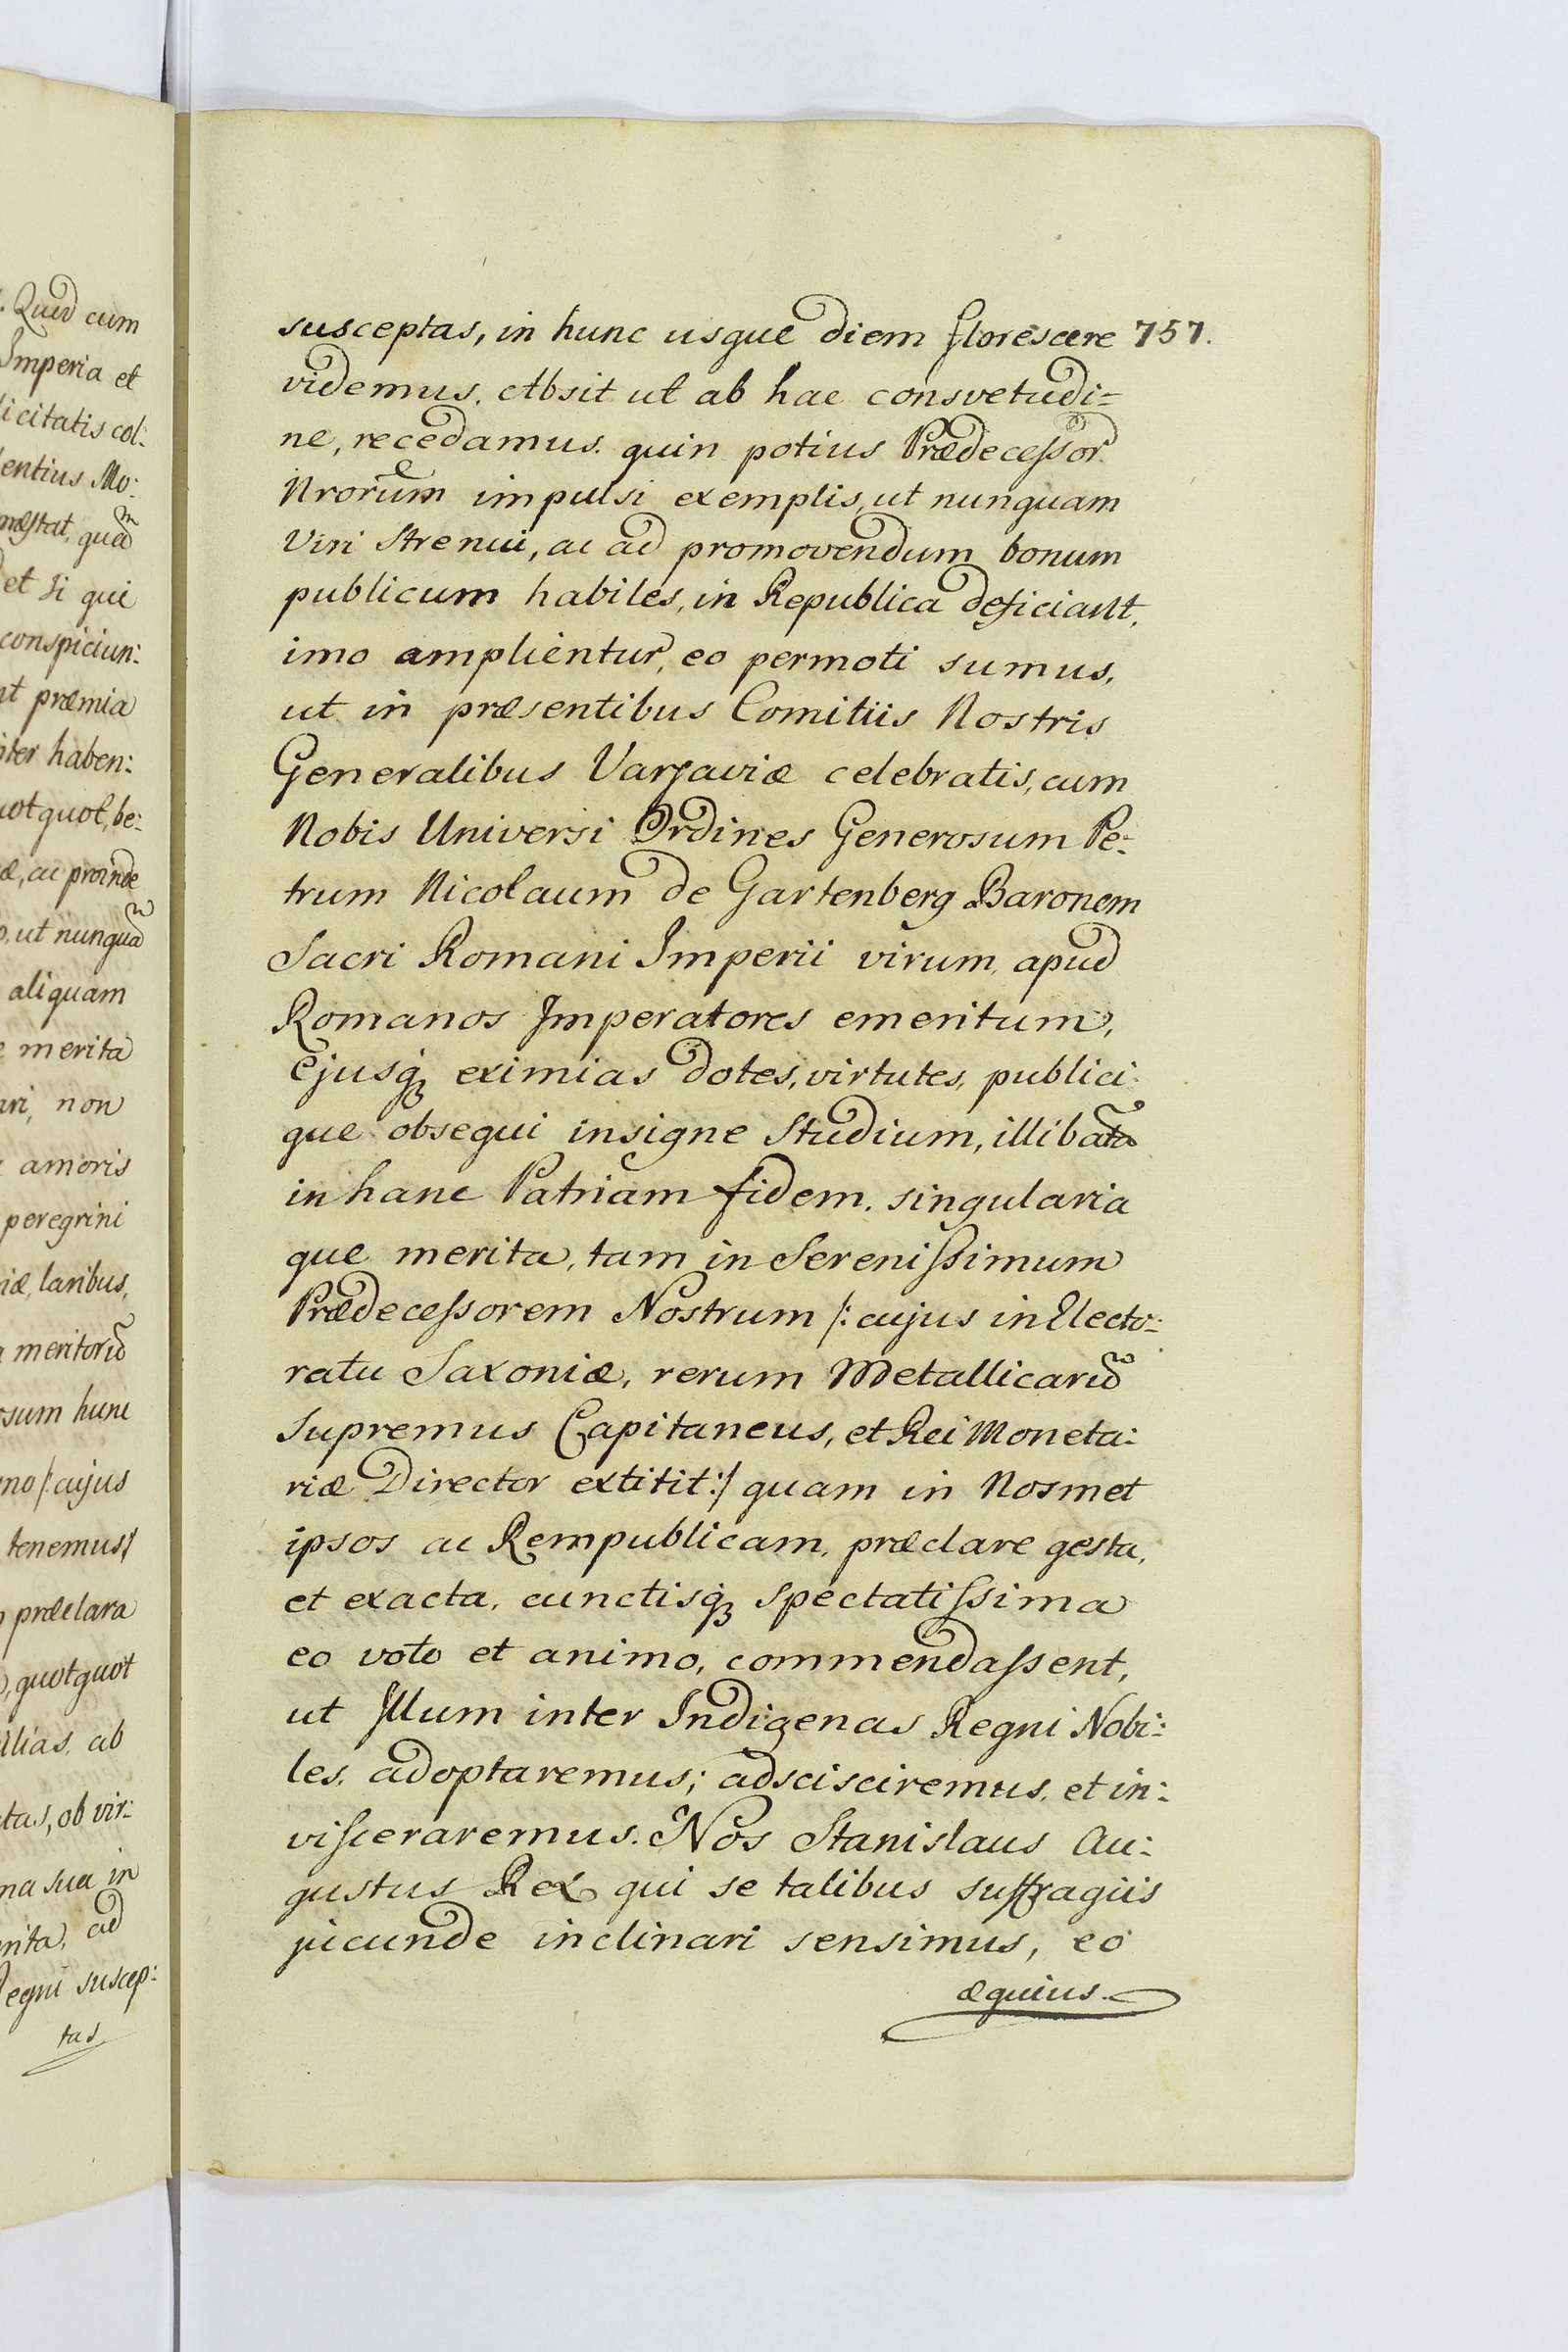 . Quid cum
Imperia et
licitatis col:
lentius Mo:
mæstat, quam
et si qui
conspiciun:
nt præmia
inter haben:
uotquot, be:
æ, ac proinde
o, ut nunquam
aliquam
e merita
ari, non
amoris
peregrini
iæ, laribus,
meritorũ
osum hunc
mo /: cujus
tenemus/
præclara
, quotquot
ilias, ab
tas, ob vir:
ma sua in
rita, ad
Regni suscep:
tas
susceptas, in hunc usque diem florescere 757.
videmus. Absit ut ab hac consvetudi=
ne, recedamus. quin potius Prædeceſsor.
Nrorum impulsi exemplis, ut nunquam
Viri Strenui, ac ad promovendum bonum
publicum habiles, in Republica deficiant,
imo amplientur, eo permoti sumus,
ut in præsentibus Comitiis Nostris
Generalibus Varsaviæ celebratis, cum
Nobis Universi Ordines Generosum Pe:
trum Nicolaum de Gartenberg Baronem
Sacri Romani Imperii virum, apud
Romanos Imperatores emeritum,
Ejusq; eximias dotes, virtutes, publici
que obsequi insigne Studium, illibatã
in hanc Patriam fidem, singularia
que merita, tam in Sereniſsimum
Prædeceſsorem Nostrum /: cujus in Electo:
ratu Saxoniæ, rerum Metallicarũ
Supremus Capitaneus, et Rei Moneta:
riæ Director extitit :/ quam in Nosmet
ipsos ac Rempublicam, præclare gesta,
et exacta, cunctisq; spectatiſsima
eo voto et animo, commendaſsent,
ut Illum inter Indigenas Regni Nobi:
les, adoptaremus; adscisciremus, et in:
viſceraremus. Nos Stanislaus Au:
gustus Rex qui se talibus suffragiis
jucunde inclinari sensimus, eo
æquius.